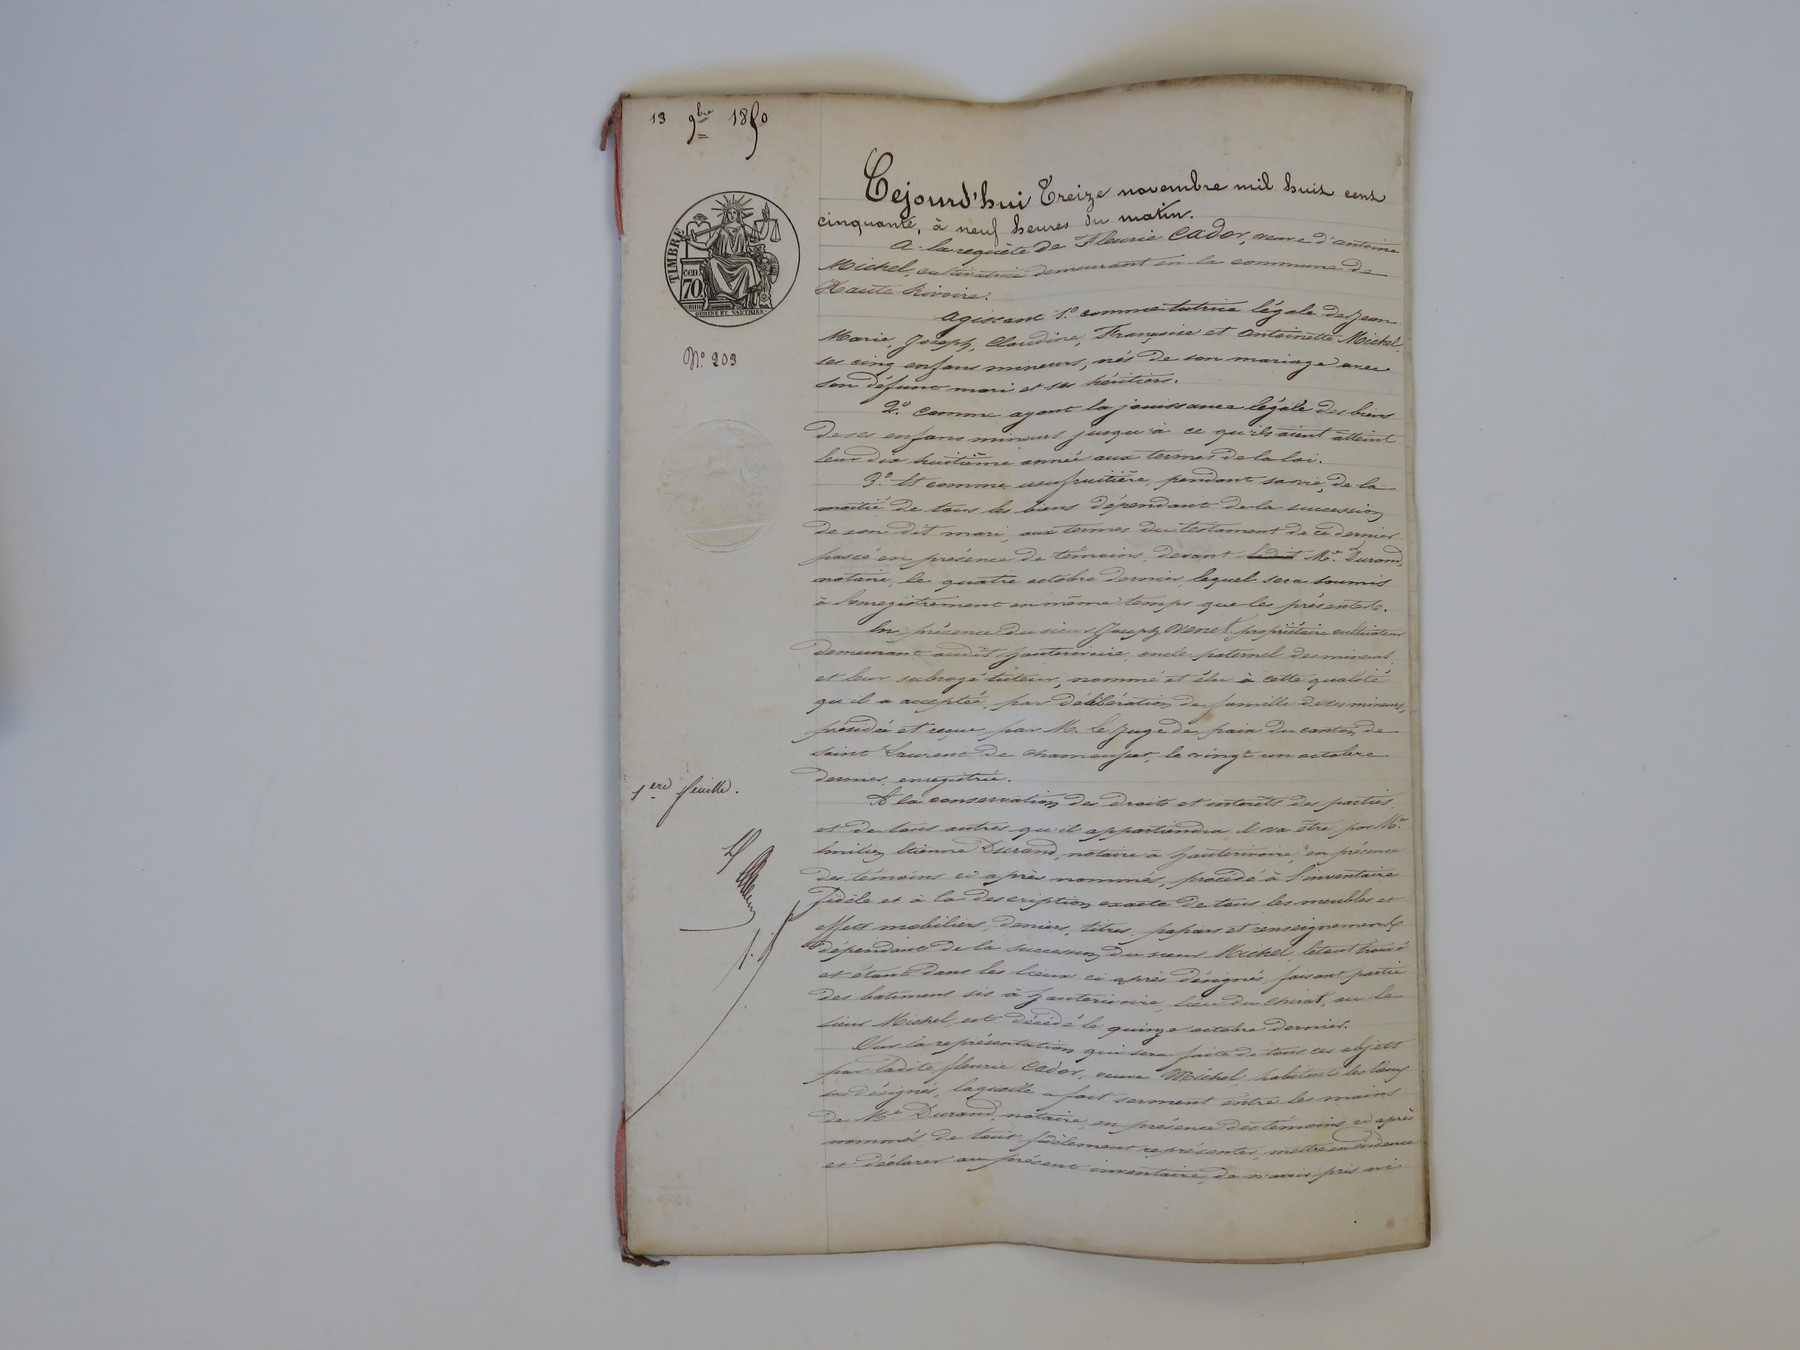 13 9bre 1850
TIMBRE
CEN. 70
OUDINÉ ET VAUTHIER
No. 203
1ere feuille.
Cejourd'hui Treize novembre mil huit cent
cinquante, à neuf heures du matin.
A la requête de Fleurie Cador, veuve d'antoine
Michel, cultivatrice demeurant en la commune de
Haute Rivoire.
Agissant 1o. comme tutrice légale de Jean
Marie, Joseph, Claudine, Françoise et Antoinette Michel,
ses cinq enfans mineurs, nés de son mariage avec
son défunt mari et ses héritiers.
2o. comme ayant la jouissance légale des biens
de ses enfans mineurs jusqu'à ce qu'ils aient atteint
leur dix huitième année aux termes de la loi.
3o. Et comme usufruitière, pendant sa vie, de la
moitié de tous les biens dépendant de la succession
de son dit mari, aux termes du testament de ce dernier
passé en présence de témoins, devant ledit Me. Durand,
notaire, le quatre octobre dernier, lequel sera soumis
à l'enregistrement en même temps que les présentes.
En présence du sieur Joseph Venet, propriétaire cultivateur
demeurant audit hauterivoire, oncle paternel des mineurs,
et leur subrogé tuteur, nommé et élu à cette qualité
qu'il a acceptée, par délibération de famille desdits mineurs,
présidée et reçue par M. le Juge de paix du canton de
saint Laurent de chamousset, le vingt un octobre
dernier, enregistrée.
A la conservation des droits et intérêts des parties,
et de tous autres qu'il appartiendra, il va être par Me.
Emilien Etienne Durand, notaire à hauterivoire, en présence
des témoins ci après nommés, procédé à l'inventaire
fidèle et à la description exacte de tous les meubles et
effets mobiliers, deniers, titres, papiers et renseignements
dépendant de la succession du sieur Michel, le tout trouvé
et étant dans les lieux ci après désignés, faisant partie
des batimens sis à hauterivoire, lieu du chirat, où le
sieur Michel, est décédé le quinze octobre dernier.
Sur la représentation qui sera faite de tous ces objets
par ladite fleurie Cador, veuve Michel, habitant les lieux
sus désignés, laquelle a fait serment entre les mains
de Me Durand, notaire, en présence des témoins, ci après
nommés, de tout fidèlement représenter, mettre en évidence
et déclarer au présent inventaire, de n'avoir pris ni